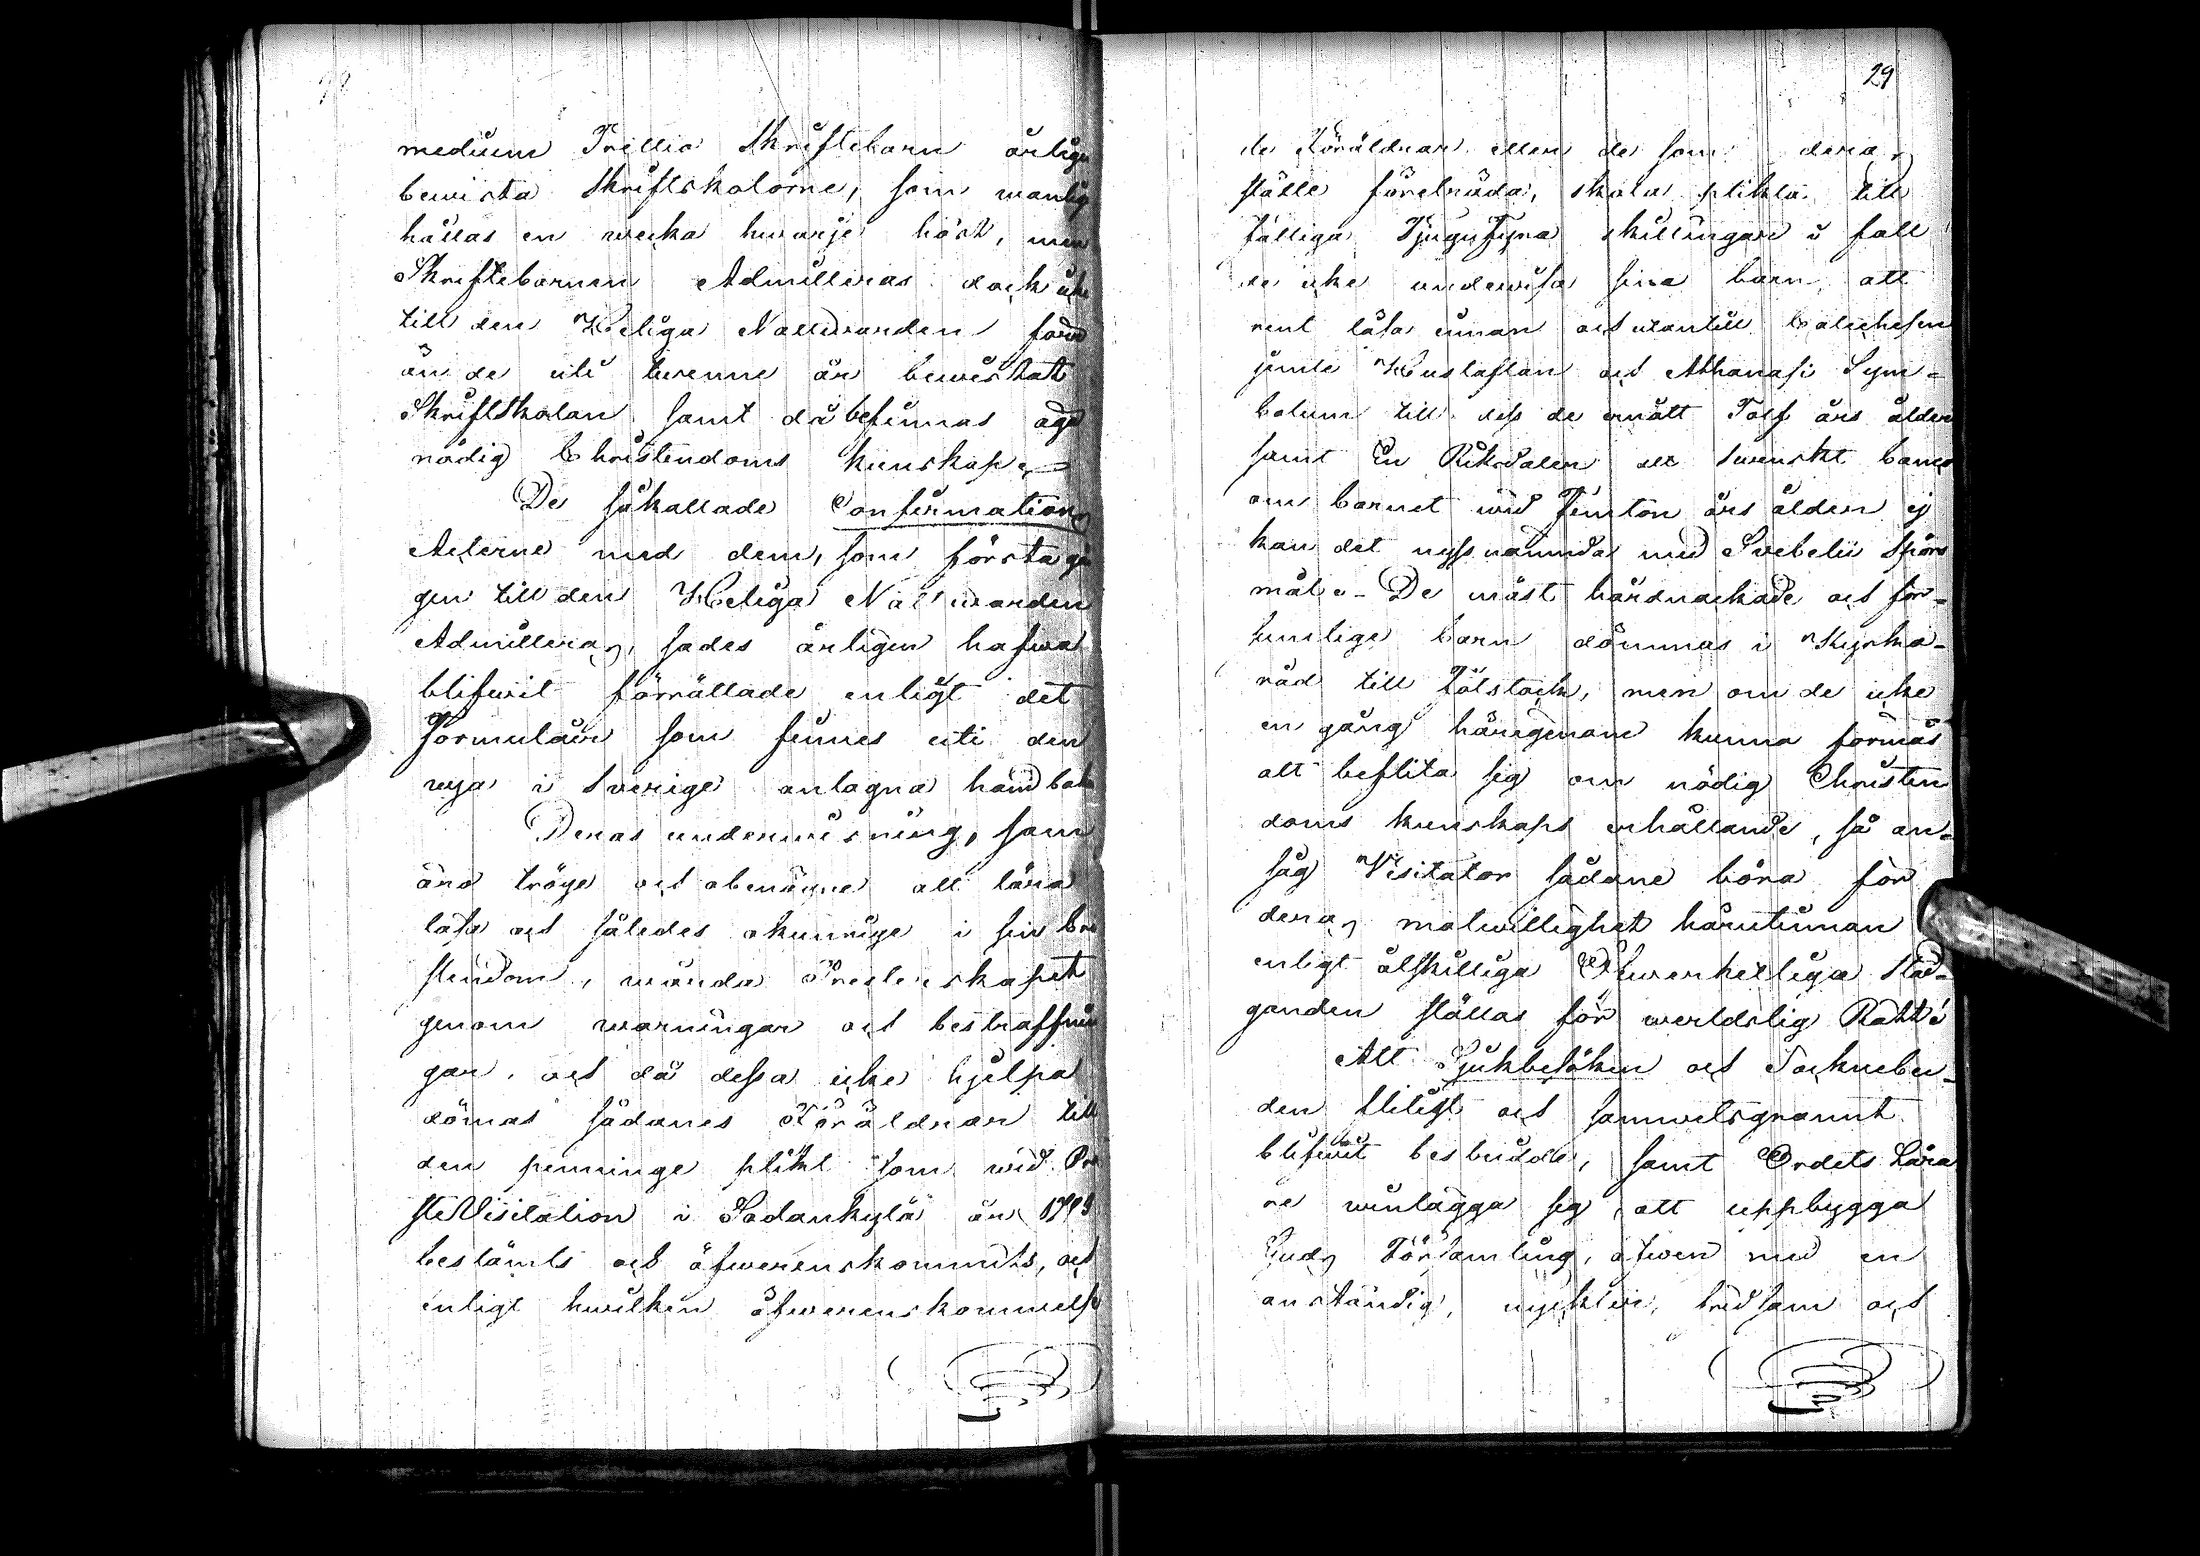 medium Trettio Skriftebarn årlige
bewista Skriftskolorne, som wanlig
hållas en wecka hwarje höst, men
Skriftebarnen Admitteras dock icke
till den Heliga Nattwarden förr
än de uti twenne år bewistat
Skriftskolan samt då befinnas äga
nödig Christendoms kunskap.
De såkallade Confirmations
Acterne med dem, som första gå
gen till den Heliga Nattwarden
Admitteras, sades årligen hafwa
blifwit förrättade enligt det
Formulair som finnes uti den
nya i Sverige antagna handbok
Deras underwisning, som
äro tröge och obenägne att lära
läsa och således okunnige i sin Chri
stendom, wårda Presterskapet
genom warningar och bestraffnin
gar, och då dessa icke hjelpa
dömas sådanes Föräldrar till
den penninge plikt som wid Pro
steVisitation i Sodankylä år
bestämts och öfwerenskommits, och
enligt hwilken öfwerenskommelse
29
de Föräldrar eller de som deras
ställe förelräda, skola plikta till
fälliga Tjugufyra skillingar i fall
de icke underwisa sina barn, att
rent läsa innan och utantill Catechesen
jemte Hustaflan och Athanasi Sym-
bolum till dess de ernått Tolf års ålder
samt En Riksdaler allt Swenskt Banco
om barnet wid Femton års ålder ej
kan det nyssnämnda med Svebelii Spörs
mål. De mäst hårdnackade och för-
sumlige barn dömmas i Kyrko-
råd till Fotstock, men om de icke
en gång härigenom kunna förmås
att beflita sig om nödig Christen
doms kunskaps erhållande, så an-
såg Visitator sådane böra för
deras motwillighet härutinnan
enligt åtskilliga Öfwerhetliga stad-
ganden ställas för werldslig Rätt.
Att Sjukbesöken och Socknebu-
den flitigt och samwetsgrannt
blifwit bestridde, samt Ordets Lära
re winlägga sig att uppbygga
Guds Församling, äfwen med en
anständig, nykter, fridsam och